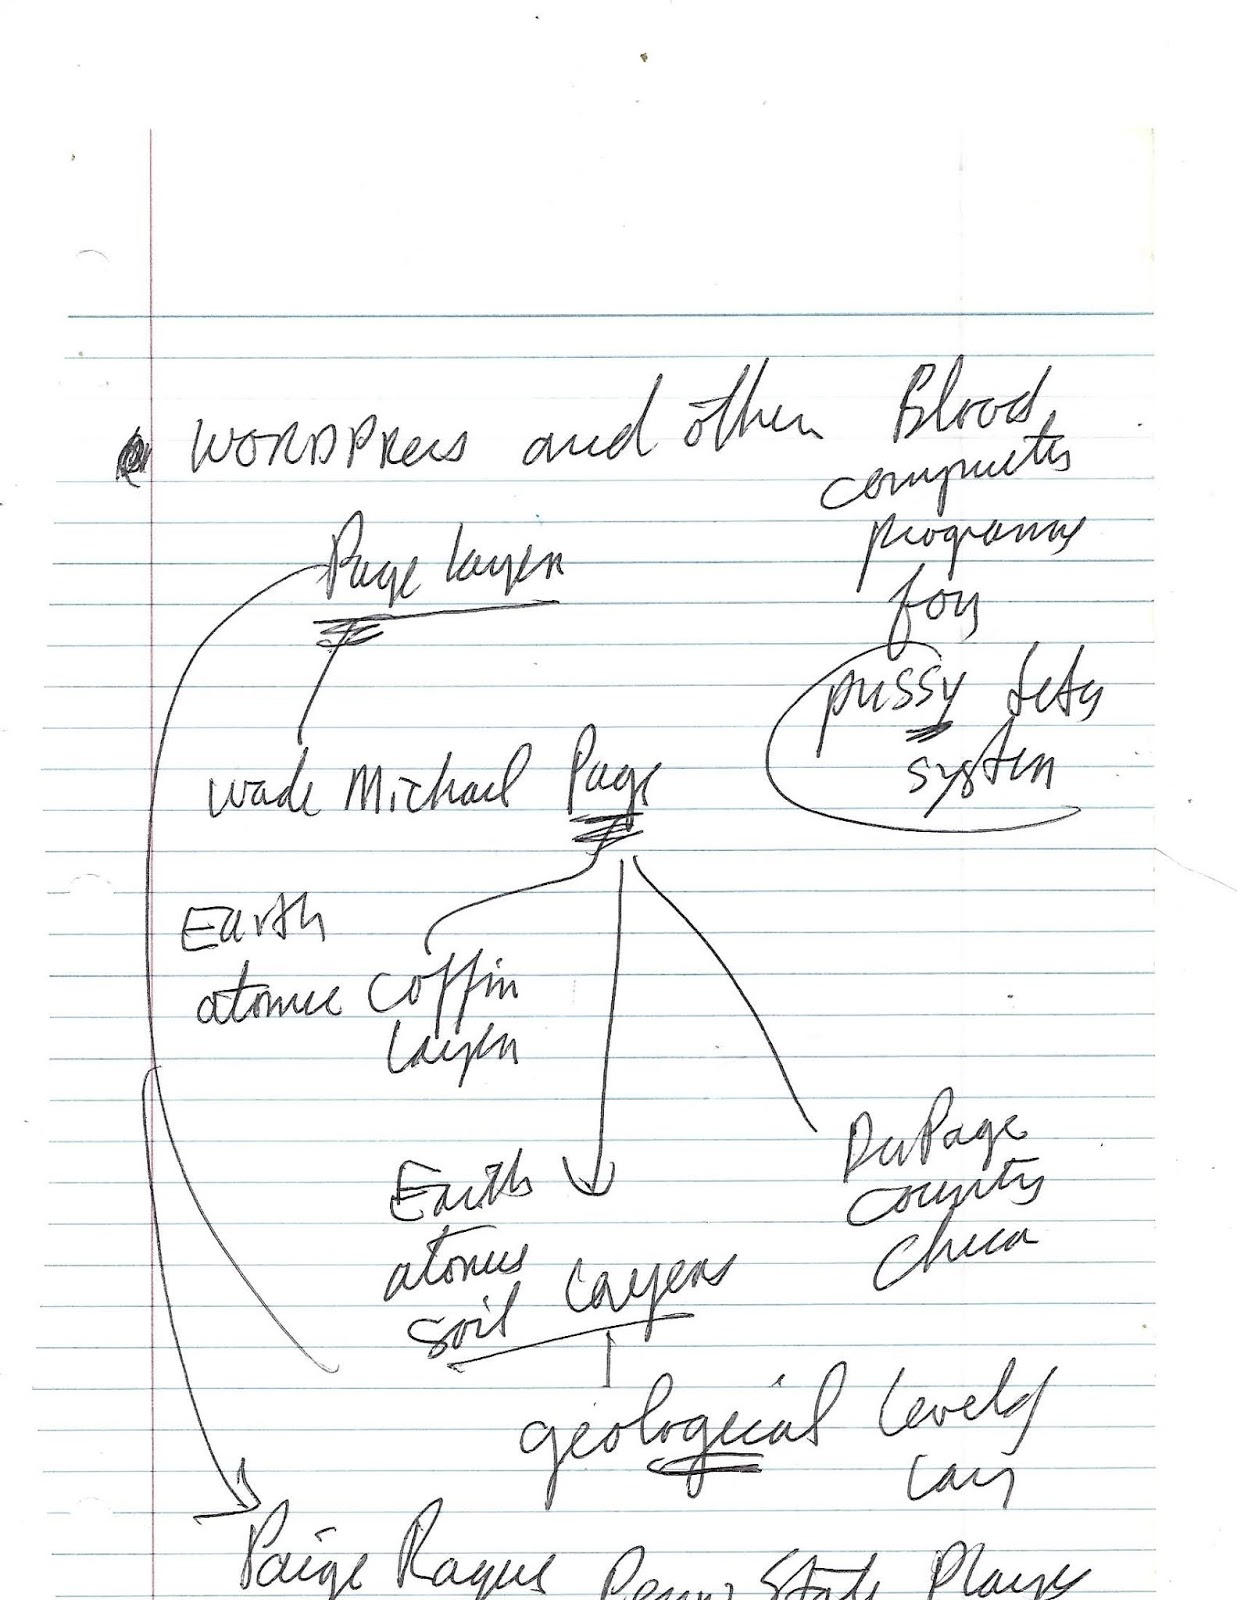 WORDPRess and other Blood
computer
programs
for
Page layer
pussy
system
Wade Michael Page
Earth
atomic coffin
layer
DuPage
county
Earth
atomic
soil layers
geological levels
Paige Raque Penn State Player